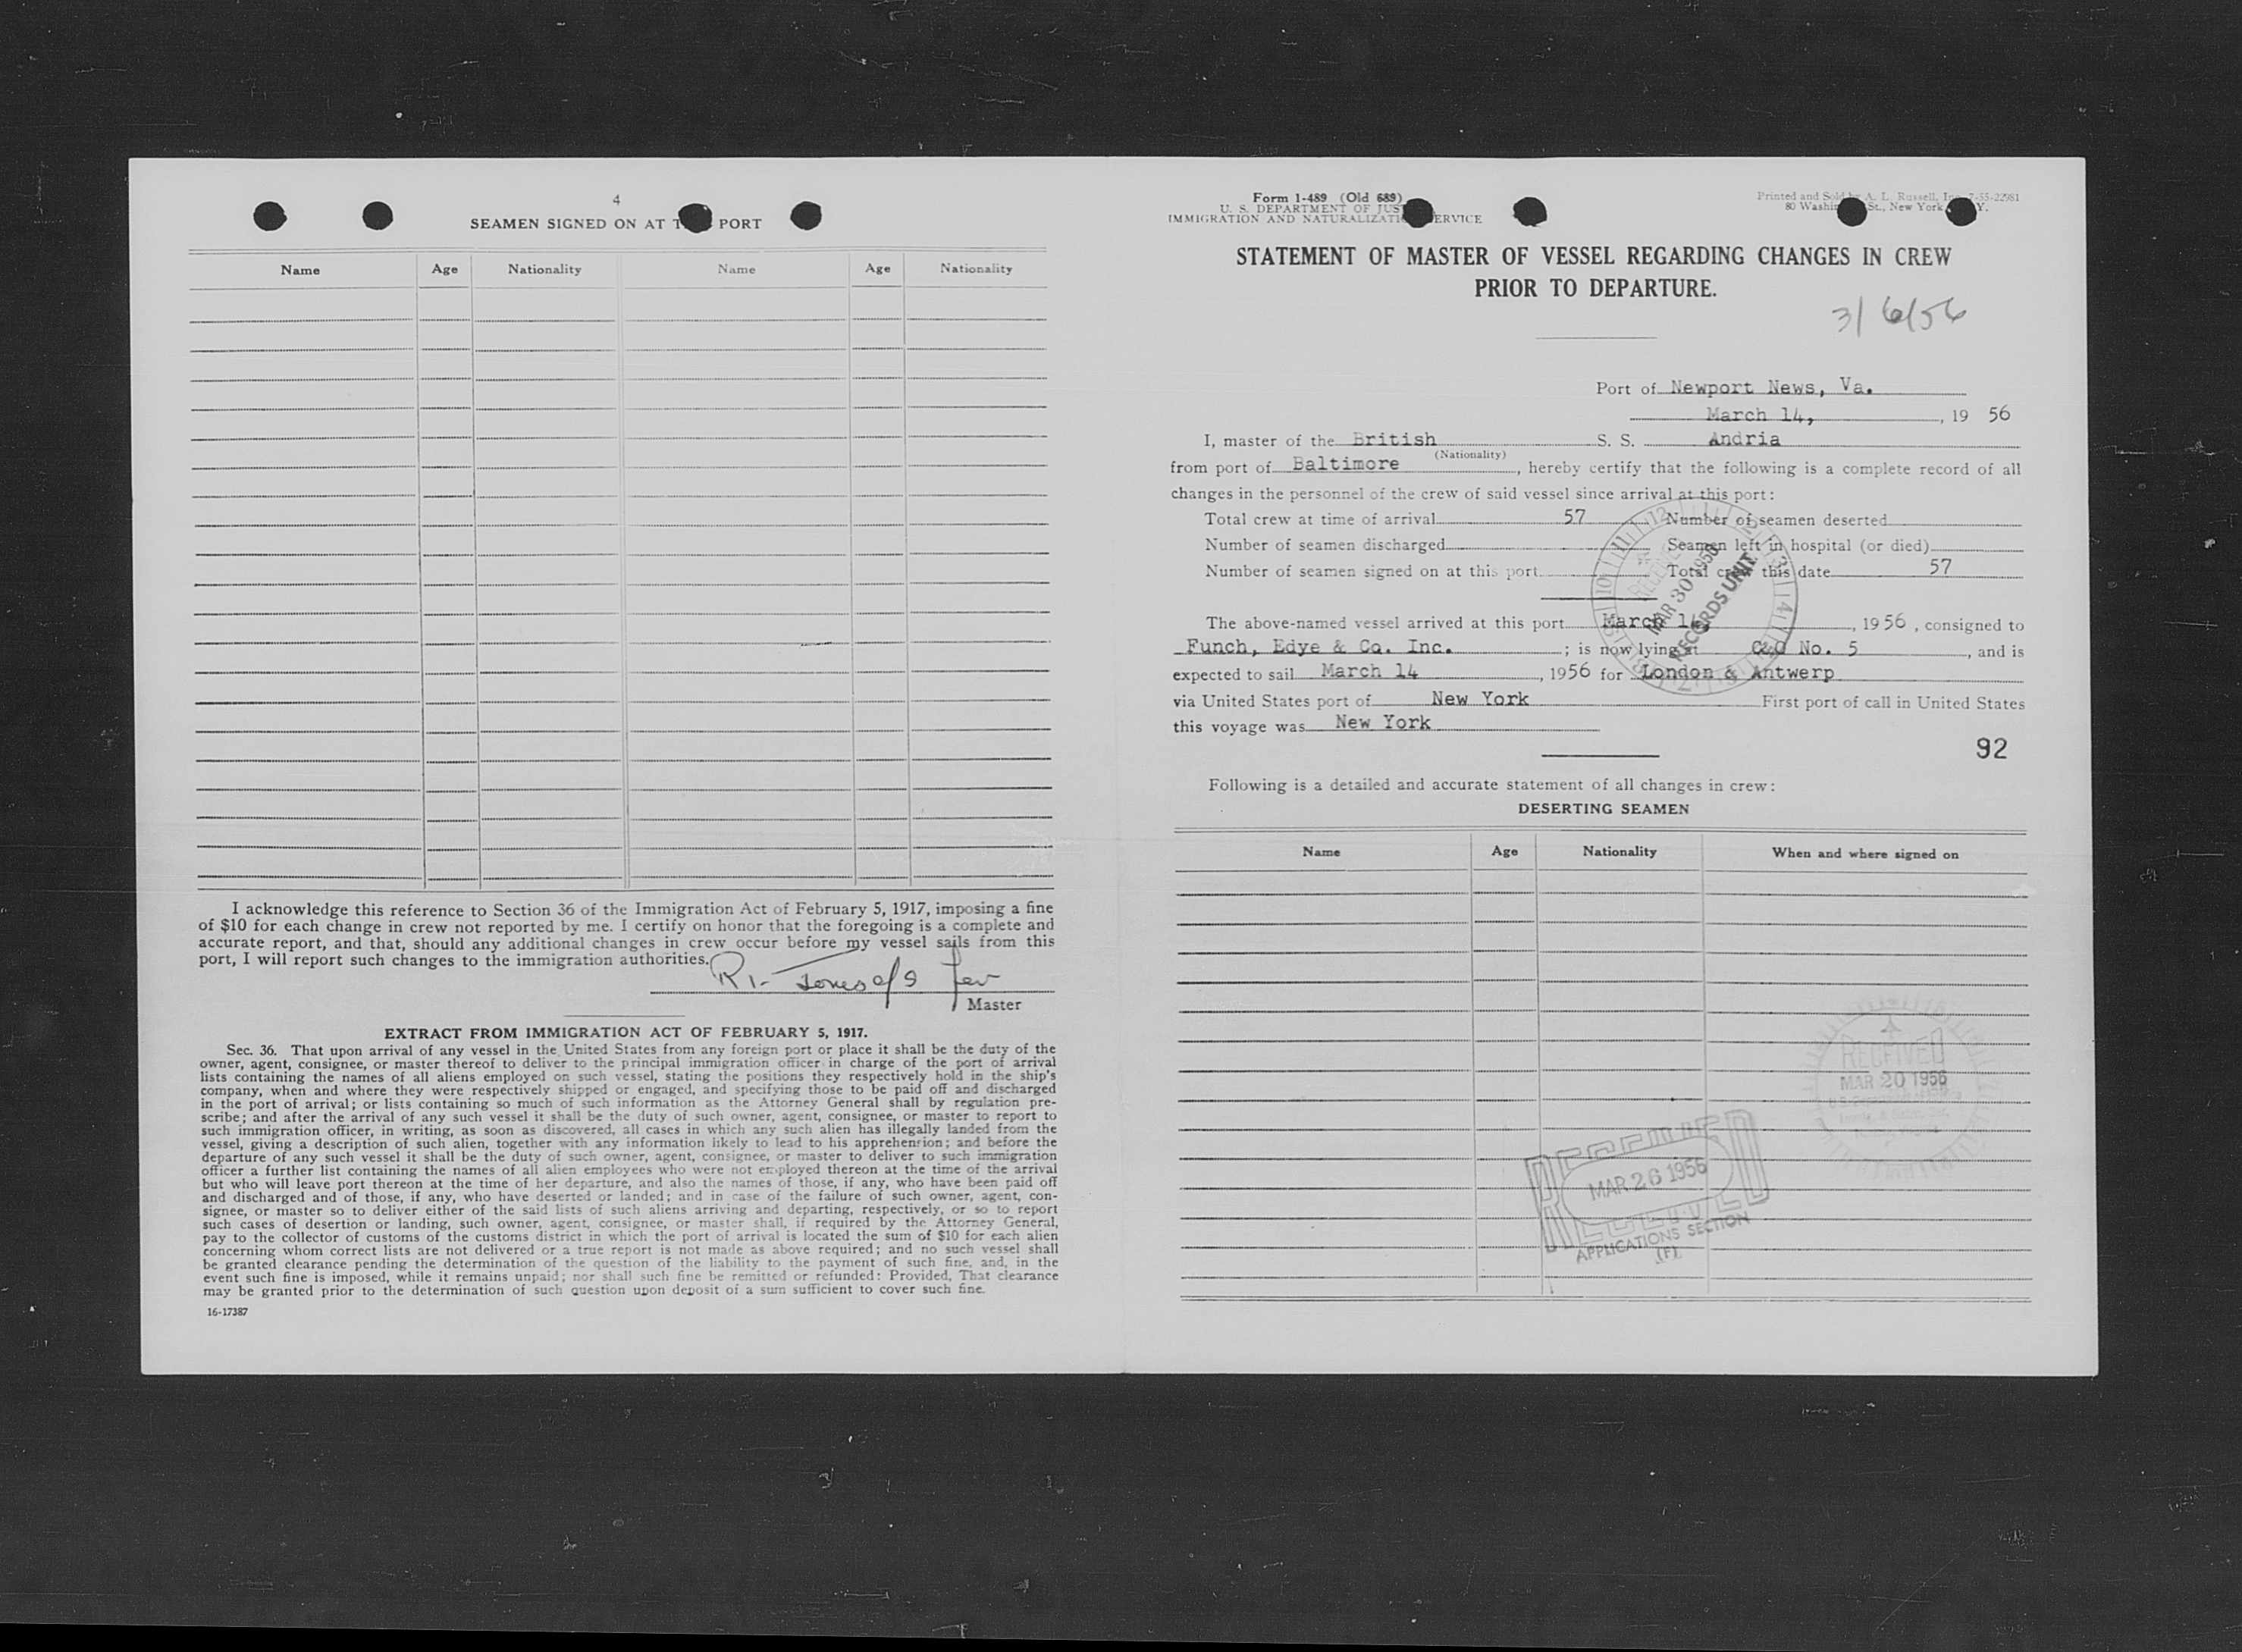 4
SEAMEN SIGNED ON AT PORT
Name Age Nationality Name Age Nationality
I acknowledge this reference to Section 36 of the Immigration Act of February 5, 1917, imposing a fine
of $10 for each change in crew not reported by me. I certify on honor that the foregoing is a complete and
accurate report, and that, should any additional changes in crew occur before my vessel sails from this
port, I will report such changes to the immigration authorities.
Master
EXTRACT FROM IMMIGRATION ACT OF FEBRUARY 5, 1917.
Sec. 36. That upon arrival of any vessel in the United States from any foreign port or place it shall be the duty of the
owner, agent, consignee, or master thereof to deliver to the principal immigration officer in charge of the port of arrival
lists containing the names of all aliens employed on such vessel, stating the positions they respectively hold in the ship's
company, when and where they were respectively shipped or engaged, and specifying those to be paid off and discharged
in the port of arrival; or lists containing so much of such information as the Attorney General shall by regulation pre-
scribe; and after the arrival of any such vessel it shall be the duty of such owner, agent, consignee, or master to report to
such immigration officer, in writing, as soon as discovered, all cases in which any such alien has illegally landed from the
vessel, giving a description of such alien, together with any information likely to lead to his apprehension; and before the
departure of any such vessel it shall be the duty of such owner, agent, consignee, or master to deliver to such immigration
officer a further list containing the names of all alien employees who were not employed thereon at the time of the arrival
but who will leave port thereon at the time of her departure, and also the names of those, if any, who have been paid off
and discharged and of those, if any, who have deserted or landed; and in case of the failure of such owner, agent, con-
signee, or master so to deliver either of the said lists of such aliens arriving and departing, respectively, or so to report
such cases of desertion or landing, such owner, agent, consignee, or master shall, if required by the Attorney General,
pay to the collector of customs of the customs district in which the port of arrival is located the sum of $10 for each alien
concerning whom correct lists are not delivered or a true report is not made as above required; and no such vessel shall
be granted clearance pending the determination of the question of the liability to the payment of such fine, and, in the
event such fine is imposed, while it remains unpaid; nor shall such fine be remitted or refunded: Provided, That clearance
may be granted prior to the determination of such question upon deposit of a sum sufficient to cover such fine.
16-17387
Form 1-489 (Old 689)
U. S. DEPARTMENT OF
IMMIGRATION AND
Printed and Sold by A. L. Russell,
80 St., New York
STATEMENT OF MASTER OF VESSEL REGARDING CHANGES IN CREW
PRIOR TO DEPARTURE.
3/6/56
Port of Newport News, Va.
March 14, , 19 56
I, master of the British S. S. Andria
(Nationality)
from port of Baltimore , hereby certify that the following is a complete record of all
changes in the personnel of the crew of said vessel since arrival at this port:
Total crew at time of arrival 57 Number of seamen deserted
Number of seamen discharged Seamen left in hospital (or died)
Number of seamen signed on at this port Total crew this date 57
MAR 30 1956
RECORDS UNIT
The above-named vessel arrived at this port March 14, , 1956 , consigned to
Funch, Edye & Co. Inc. ; is now lying at C&O No. 5 , and is
expected to sail March 14 , 1956 for London & Antwerp
via United States port of New York First port of call in United States
this voyage was New York
92
Following is a detailed and accurate statement of all changes in crew:
DESERTING SEAMEN
Name Age Nationality When and where signed on
RECEIVED
MAR 20 1956
RECEIVED
MAR 26 1956
APPLICATIONS SECTION
(F)